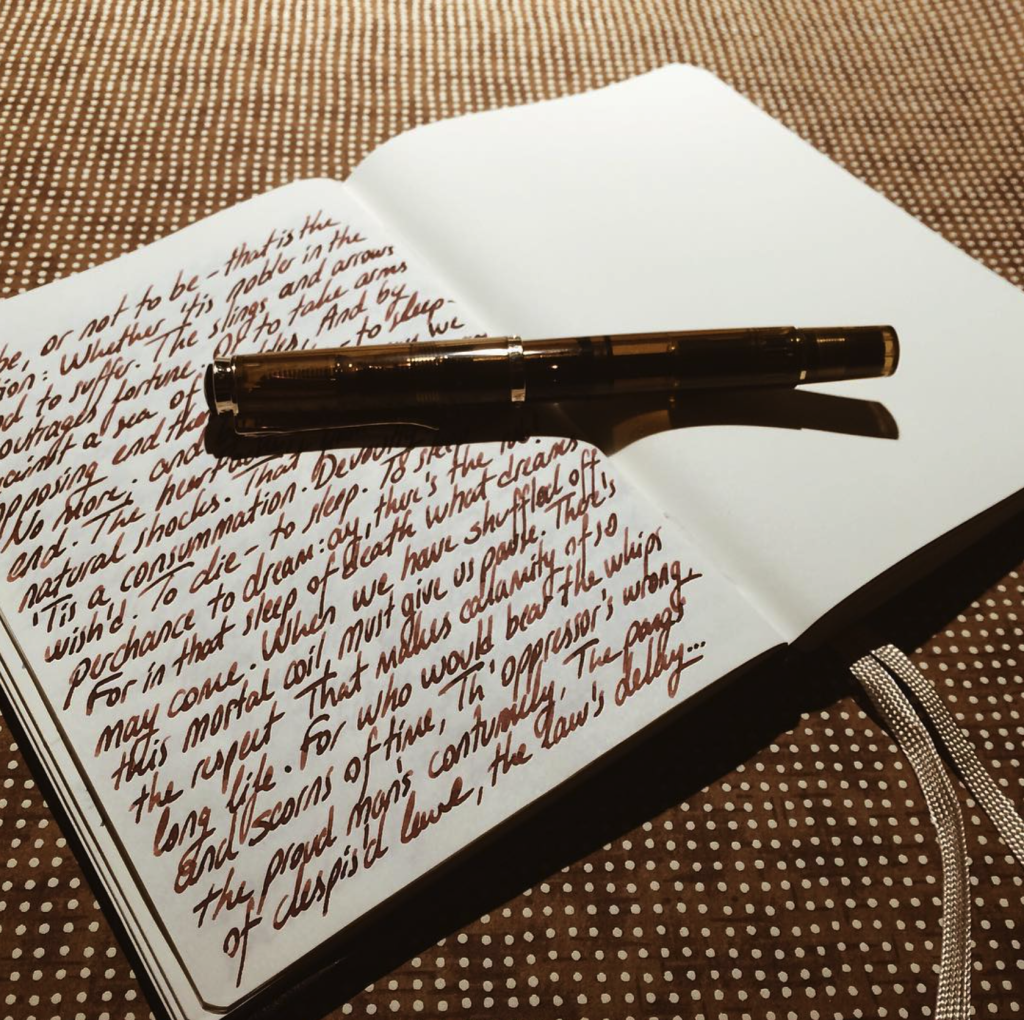 be, or not to be – that is the
ion: Whether 'tis nobler in the
d to suffer. The slings and arrows
outrages fortune, Or to take arms
against a sea of
opposing end the And by
No more. and to sleep-
end. The heart we
natural shocks. That
'Tis a consummation. Devou
wish'd. To die – to sleep. To sle
perchance to dream: ay, there's the
For in that sleep of death what dreams
may come. When we have shuffled off
this mortal coil must give us pause. There's
the respect That makes calamity of so
long life. For who would bear the whips
and scorns of time, Th'oppressor's wrong.
the proud man's contumely, The pangs
of despis'd love, the law's delay...